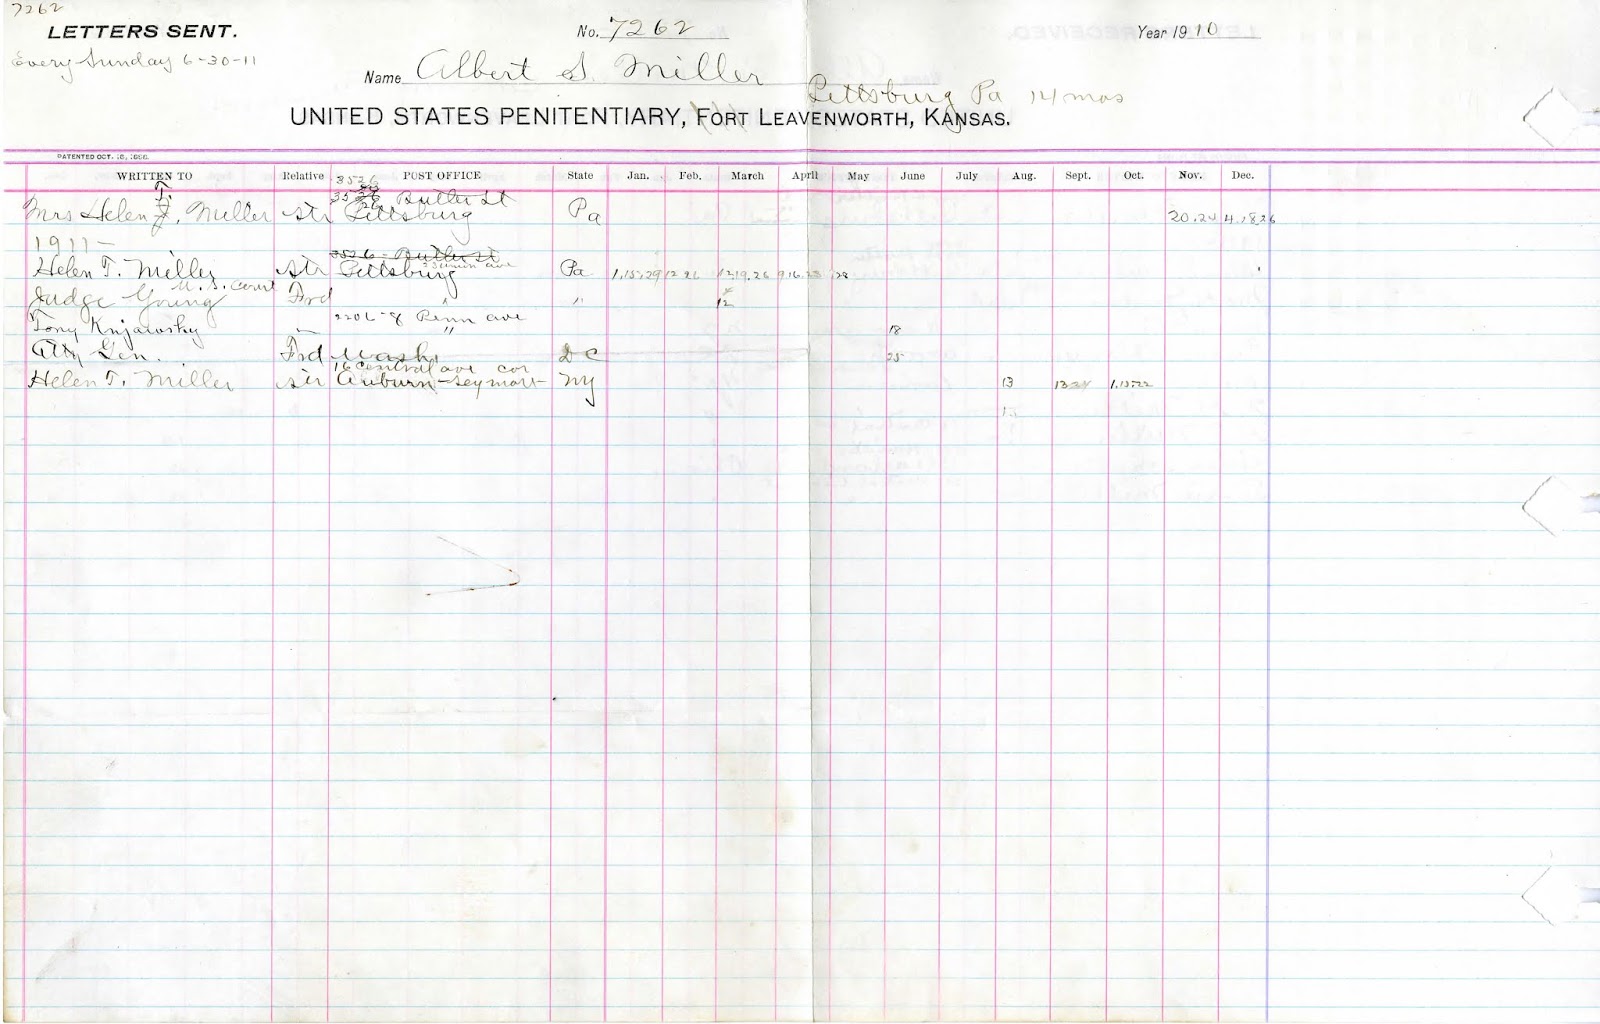 7262
LETTERS SENT.
No. 7262
Year 1910
Every Sunday 6-30-11
Name Albert S. Miller
Pittsburg Pa 14 mos
UNITED STATES PENITENTIARY, FORT LEAVENWORTH, KANSAS.
PATENTED OCT. 16, 1886.
WRITTEN TO Relative POST OFFICE State Jan. Feb. March April May June July Aug. Sept. Oct. Nov. Dec.
3526
Butler St
Mrs Helen T. Miller sir Pittsburg Pa 20.24 4.18 26
1911-
3526 - Butler st
Helen T. Miller sir Pittsburg Pa 1.15.29 12 26 12.19.26 9.16.23 28
Judge Young U.S. Court Frd " " 12
2206-8 Penn ave
Tony Knjawsky " 18
Atty Gen. Frd Wash. DC 25
16 Central ave cor
Helen T. Miller sir Auburn - Seymour - NY 13 13 24 1.15.22